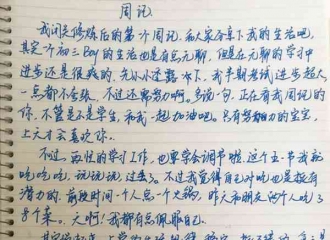 周记
我闭关修炼后的第一个周记,和大家分享下我的生活吧,
其实一个初三Boy的生活也是有点无聊,但是在无聊的学习中
进步还是很大的,先小小透露一下,我半期考试进步超大
一点都不夸张,不过还需努力啊。多说一句,正在看我周记的
你,不管是不是学生,和我一起加油吧。只有努力的宝宝,
上天才会喜欢你。
不过,再忙的学习工作,也要学会调节啦,这个五一节我就
吃吃吃,说说说,过去了,不过我觉得自己对吃也是挺有
潜力的,前段时间一个人点一个火锅,昨天和朋友两个人吃了3
8个菜。天啊!我都有点佩服自己